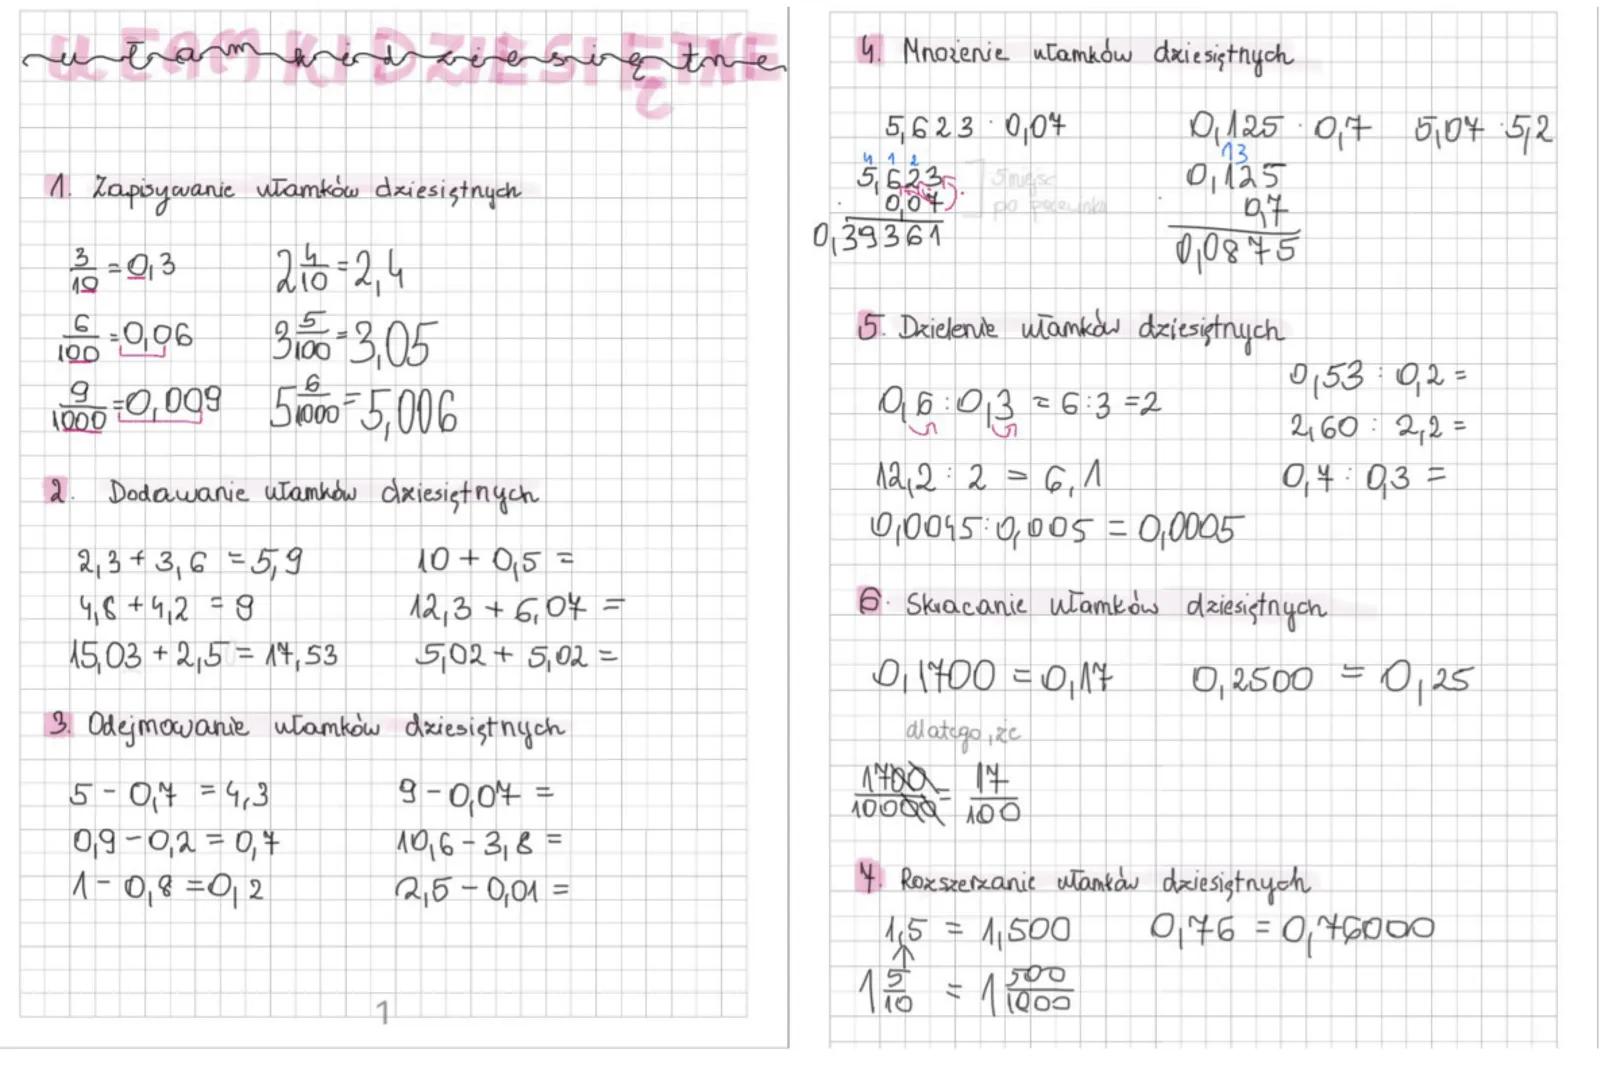 UŁAMKI DZIESIĘTNE
ułamki dziesiętne
1. Zapisywanie ułamków dziesiętnych
3/10 = 0,3    2 4/10 = 2,4
6/100 = 0,06    3 5/100 = 3,05
9/1000 = 0,009    5 6/1000 = 5,006
2. Dodawanie ułamków dziesiętnych
2,3 + 3,6 = 5,9    10 + 0,5 =
4,8 + 4,2 = 9    12,3 + 6,07 =
15,03 + 2,50 = 17,53    5,02 + 5,02 =
3. Odejmowanie ułamków dziesiętnych
5 - 0,7 = 4,3    9 - 0,07 =
0,9 - 0,2 = 0,7    10,6 - 3,8 =
1 - 0,8 = 0,2    2,5 - 0,01 =
1
4. Mnożenie ułamków dziesiętnych
5,623 · 0,07    0,125 · 0,7    5,07 · 5,2
4 1 2    13
5,623    5 miejsc    0,125
· 0,07    po przecinku    · 0,7
0,39361    0,0875
5. Dzielenie ułamków dziesiętnych
0,53 : 0,2 =
0,6 : 0,3 = 6 : 3 = 2
2,60 : 2,2 =
12,2 : 2 = 6,1    0,7 : 0,3 =
0,0045 : 0,005 = 0,0005
6. Skracanie ułamków dziesiętnych
0,1700 = 0,17    0,2500 = 0,25
dlatego, że
1700/10000 = 17/100
7. Rozszerzanie ułamków dziesiętnych
1,5 = 1,500    0,76 = 0,76000
1 5/10 = 1 500/1000